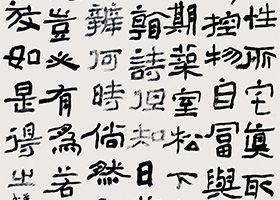 性所宅眞取
控物自冨與
期藥室松下
詩但知日
辨何時倘然
豈必有為若
如是得